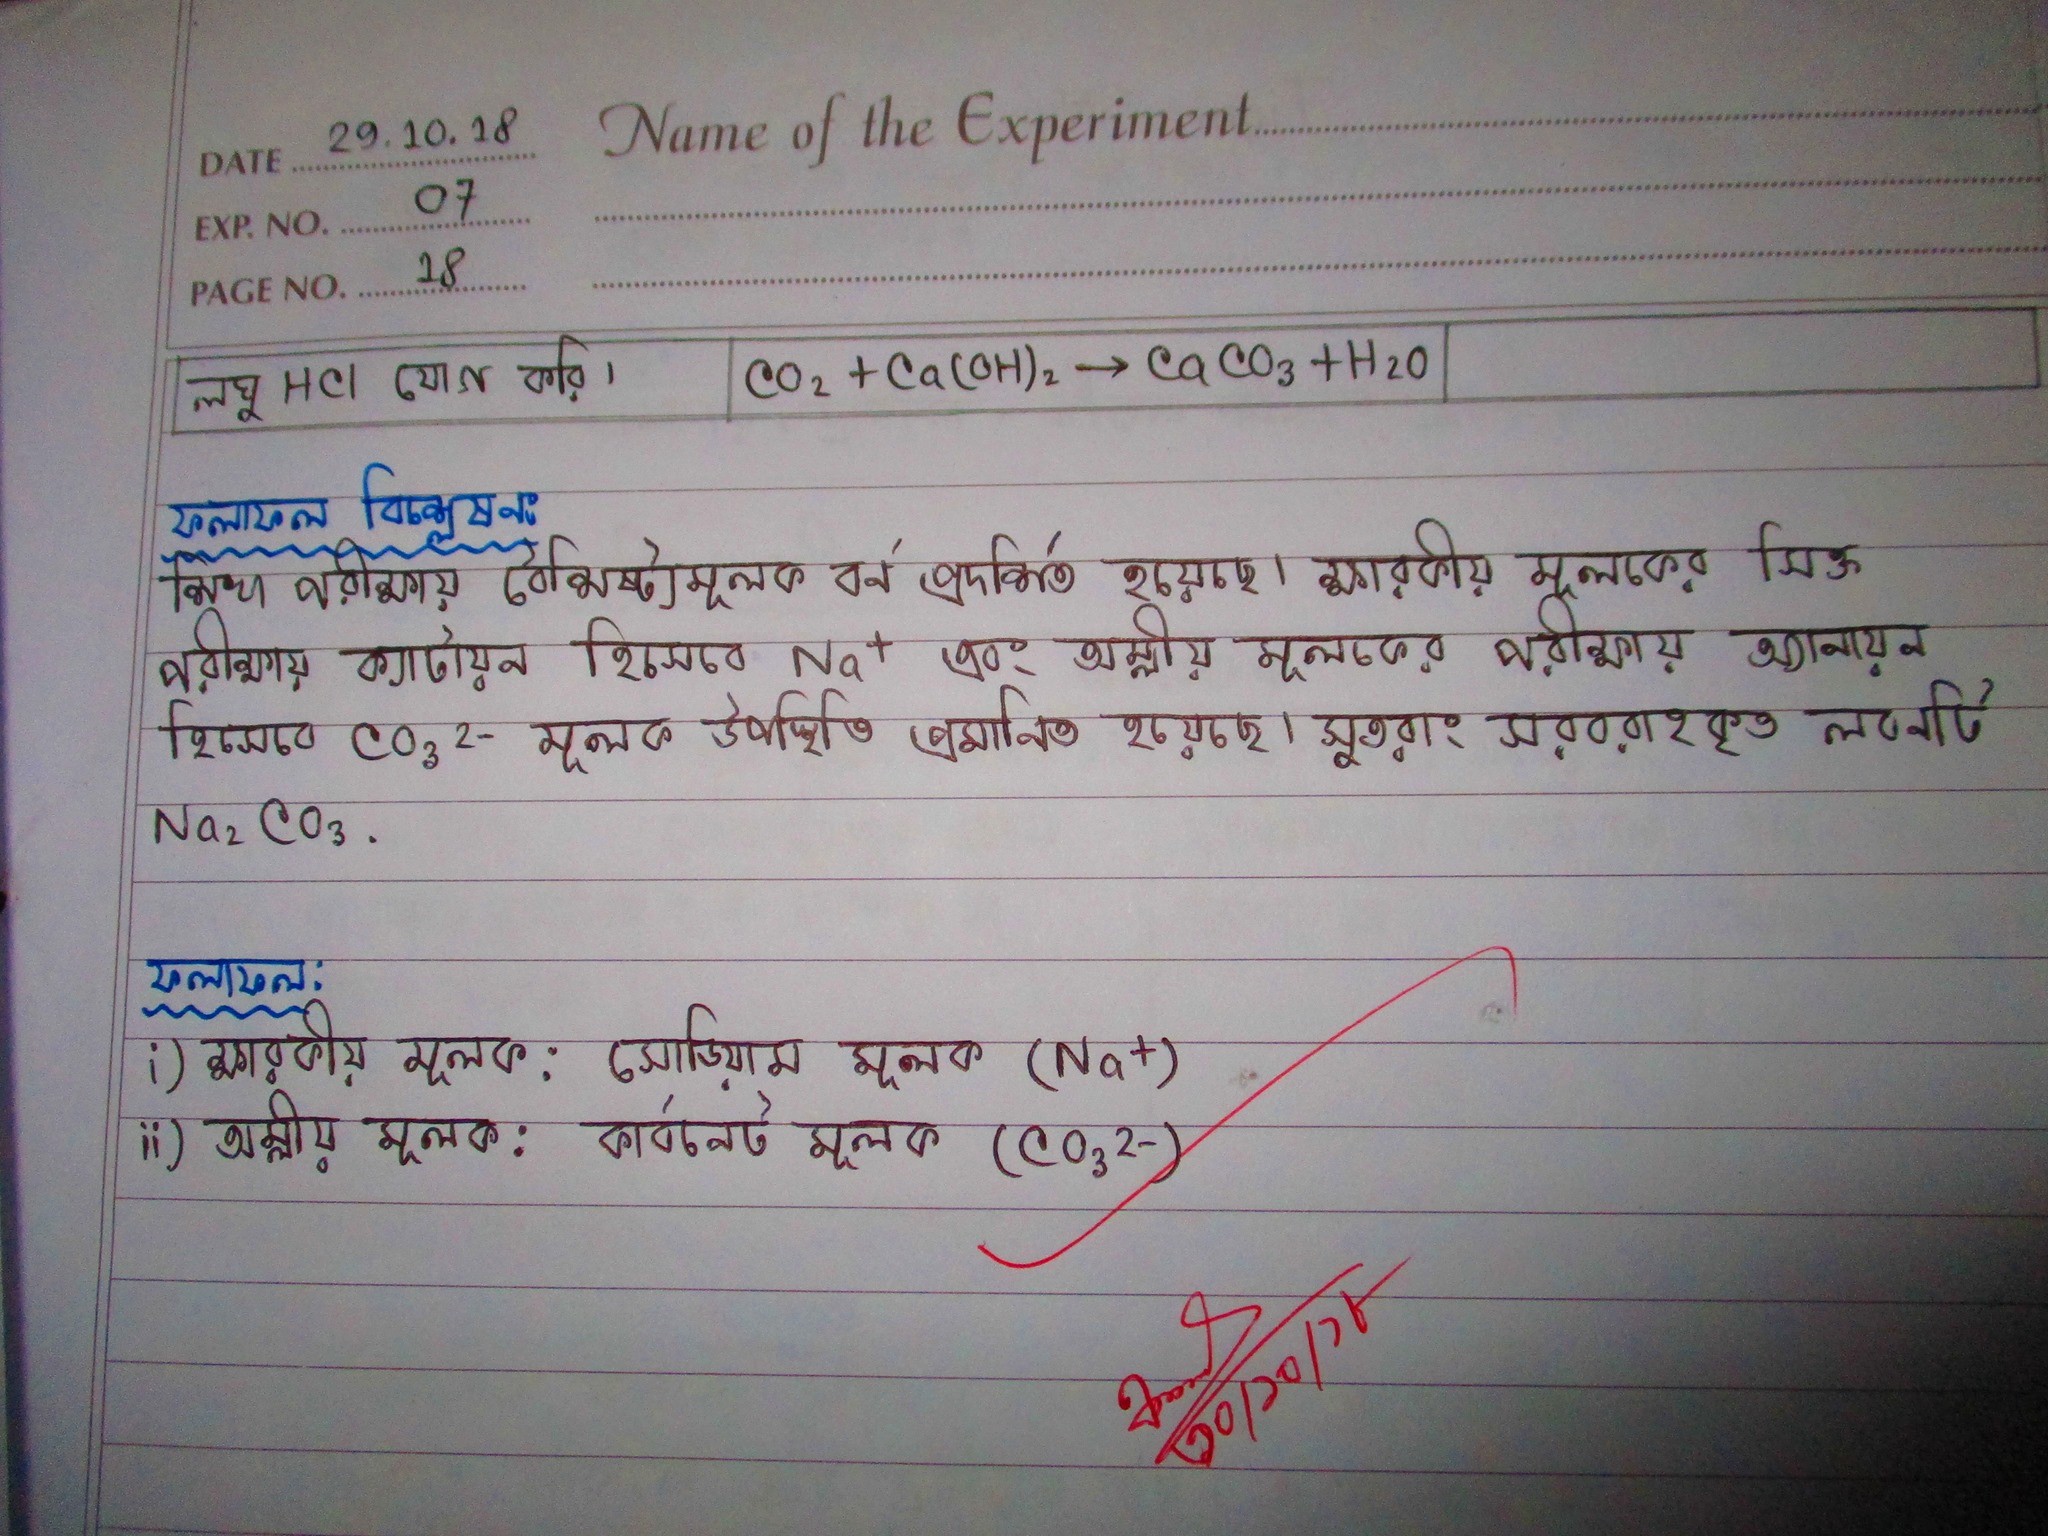 DATE 29.10.18
Name of the Experiment
EXP. NO. 07
PAGE NO. 18
লঘু HCl যোগ করি। CO₂ + Ca(OH)₂ → CaCO₃ + H₂O
ফলাফল বিশ্লেষনঃ
শিখা পরীক্ষায় বৈশিষ্ট্যমূলক বর্ন প্রদর্শিত হয়েছে। ক্ষারকীয় মূলকের সিক্ত
পরীক্ষায় ক্যাটায়ন হিসেবে Na⁺ এবং অম্লীয় মূলকের পরীক্ষায় অ্যানায়ন
হিসেবে CO₃²⁻ মূলক উপস্থিতি প্রমানিত হয়েছে। সুতরাং সরবরাহকৃত লবনটি
Na₂CO₃.
ফলাফল:
i) ক্ষারকীয় মূলক: সোডিয়াম মূলক (Na⁺)
ii) অম্লীয় মূলক: কার্বনেট মূলক (CO₃²⁻)
৩০/১০/১৮